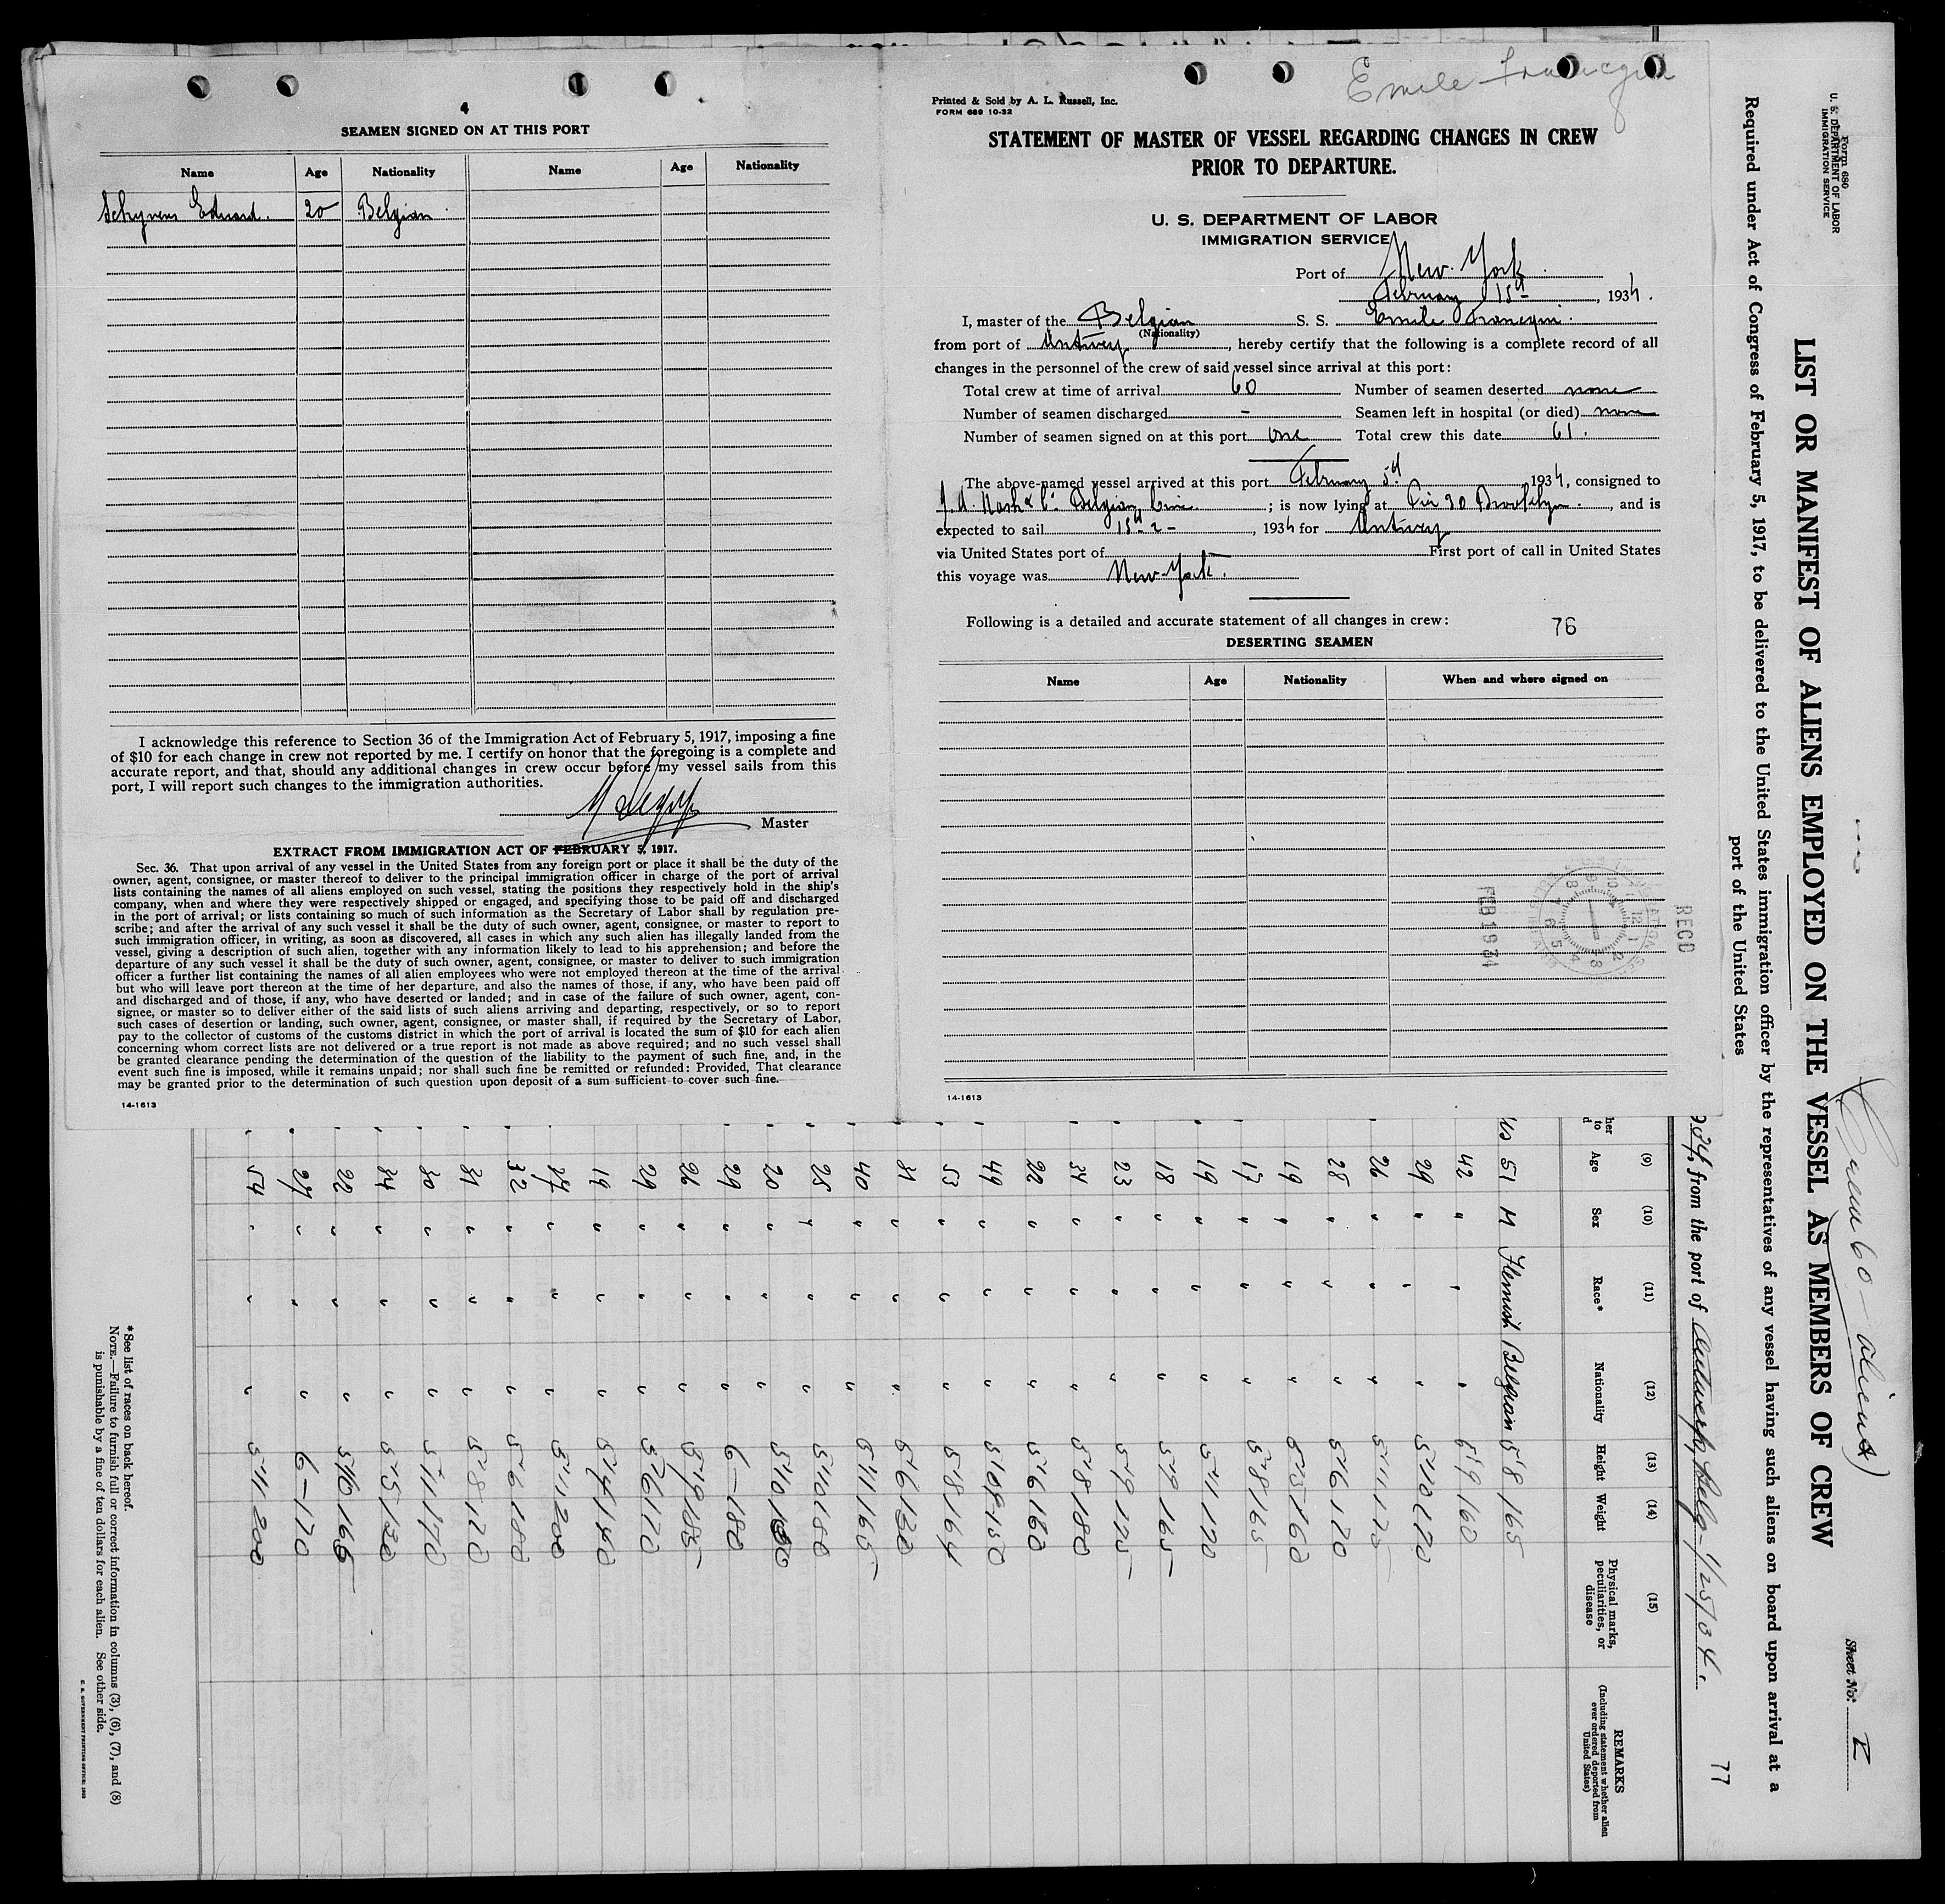 4
SEAMEN SIGNED ON AT THIS PORT
Name Age Nationality Name Age Nationality
Schyvens Eduard. 20 Belgian
I acknowledge this reference to Section 36 of the Immigration Act of February 5, 1917, imposing a fine
of $10 for each change in crew not reported by me. I certify on honor that the foregoing is a complete and
accurate report, and that, should any additional changes in crew occur before my vessel sails from this
port, I will report such changes to the immigration authorities.
Master
EXTRACT FROM IMMIGRATION ACT OF FEBRUARY 5, 1917.
Sec. 36. That upon arrival of any vessel in the United States from any foreign port or place it shall be the duty of the
owner, agent, consignee, or master thereof to deliver to the principal immigration officer in charge of the port of arrival
lists containing the names of all aliens employed on such vessel, stating the positions they respectively hold in the ship's
company, when and where they were respectively shipped or engaged, and specifying those to be paid off and discharged
in the port of arrival; or lists containing so much of such information as the Secretary of Labor shall by regulation pre-
scribe; and after the arrival of any such vessel it shall be the duty of such owner, agent, consignee, or master to report to
such immigration officer, in writing, as soon as discovered, all cases in which any such alien has illegally landed from the
vessel, giving a description of such alien, together with any information likely to lead to his apprehension; and before the
departure of any such vessel it shall be the duty of such owner, agent, consignee, or master to deliver to such immigration
officer a further list containing the names of all alien employees who were not employed thereon at the time of the arrival
but who will leave port thereon at the time of her departure, and also the names of those, if any, who have been paid off
and discharged and of those, if any, who have deserted or landed; and in case of the failure of such owner, agent, con-
signee, or master so to deliver either of the said lists of such aliens arriving and departing, respectively, or so to report
such cases of desertion or landing, such owner, agent, consignee, or master shall, if required by the Secretary of Labor,
pay to the collector of customs of the customs district in which the port of arrival is located the sum of $10 for each alien
concerning whom correct lists are not delivered or a true report is not made as above required; and no such vessel shall
be granted clearance pending the determination of the question of the liability to the payment of such fine, and, in the
event such fine is imposed, while it remains unpaid; nor shall such fine be remitted or refunded: Provided, That clearance
may be granted prior to the determination of such question upon deposit of a sum sufficient to cover such fine.
14-1613
Emile Francqui
Printed & Sold by A. L. Russell, Inc.
FORM 689 10-32
STATEMENT OF MASTER OF VESSEL REGARDING CHANGES IN CREW
PRIOR TO DEPARTURE.
U. S. DEPARTMENT OF LABOR
IMMIGRATION SERVICE
Port of New York
February 15th, 1934.
I, master of the Belgian S. S. Emile Francqui.
(Nationality)
from port of Antwerp, hereby certify that the following is a complete record of all
changes in the personnel of the crew of said vessel since arrival at this port:
Total crew at time of arrival 60 Number of seamen deserted none
Number of seamen discharged - Seamen left in hospital (or died) none
Number of seamen signed on at this port one Total crew this date 61.
The above-named vessel arrived at this port February 5th 1934, consigned to
J. A. Nash & Co. Belgian Line.; is now lying at Pier 30 Brooklyn., and is
expected to sail 15th-2-, 1934 for Antwerp
via United States port of First port of call in United States
this voyage was New-York.
Following is a detailed and accurate statement of all changes in crew:
76
DESERTING SEAMEN
Name Age Nationality When and where signed on
RECD
FEB 1934
14-1613
Form 680
U. S. DEPARTMENT OF LABOR
IMMIGRATION SERVICE
(60 - aliens)
Sheet No. V
LIST OR MANIFEST OF ALIENS EMPLOYED ON THE VESSEL AS MEMBERS OF CREW
Required under Act of Congress of February 5, 1917, to be delivered to the United States immigration officer by the representatives of any vessel having such aliens on board upon arrival at a
port of the United States
77
34, from the port of Antwerp, Belg- 1/25/34.
(9) (10) (11) (12) (13) (14) (15)
Age Sex Race* Nationality Height Weight Physical marks, peculiarities, or disease
REMARKS
(Including statement whether alien ever ordered deported from United States)
51 M Flemish Belgian 5'8 165
42 " " " 5'9 160
29 " " " 5'10 170
26 " " " 5'11 175
28 " " " 5'6 170
19 " " " 5'5 160
17 " " " 5'8 165
19 " " " 5'11 170
18 " " " 5'9 165
23 " " " 5'9 175
34 " " " 5'8 180
22 " " " 5'6 160
49 " " " 5'09 150
53 " " " 5'8 164
31 " " " 5'6 130
40 " " " 5'11 165
25 " " " 5'10 180
20 " " " 5'10 180
29 " " " 6- 180
26 " " " 5'9 185
29 " " " 5'6 170
19 " " " 5'4 140
24 " " " 5'11 200
32 " " " 5'6 180
31 " " " 5'8 170
30 " " " 5'11 170
34 " " " 5'5 130
22 " " " 5'10 165
27 " " " 6- 170
54 " " " 5'11 200
* See list of races on back hereof.
NOTE.—Failure to furnish full or correct information in columns (3), (6), (7), and (8)
is punishable by a fine of ten dollars for each alien. See other side.
U. S. GOVERNMENT PRINTING OFFICE: 1932